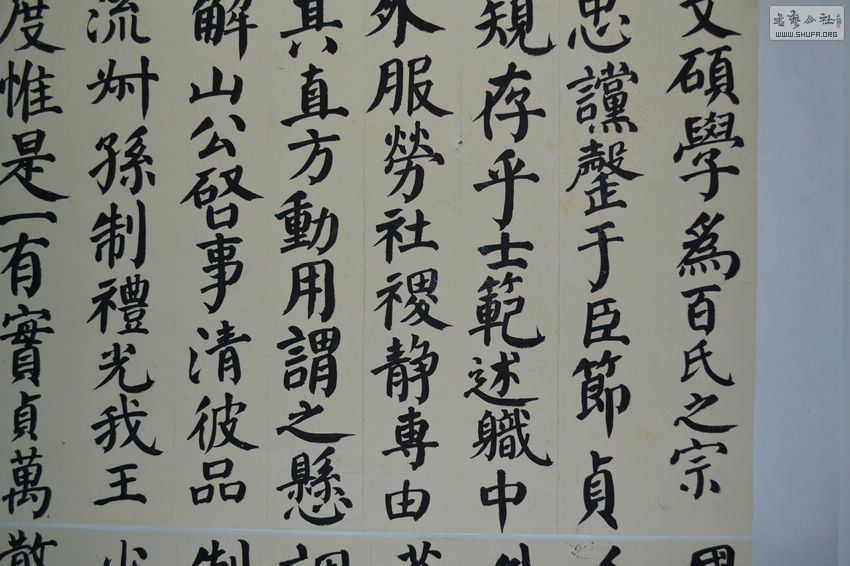 文碩學爲百氏之宗
忠讜罄于臣節貞
規存乎士範述職中
外服勞社稷静專由
其直方動用謂之懸
解山公啓事清彼品
流叔孫制禮光我王
度惟是一有實貞萬
書藝公社
WWW.SHUFA.ORG